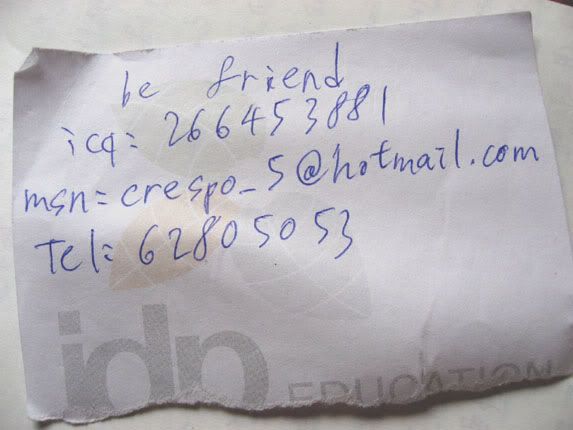 be friend
icq: 266453881
msn= crespo_5@hotmail.com
Tel: 62805053
idp EDUCATION